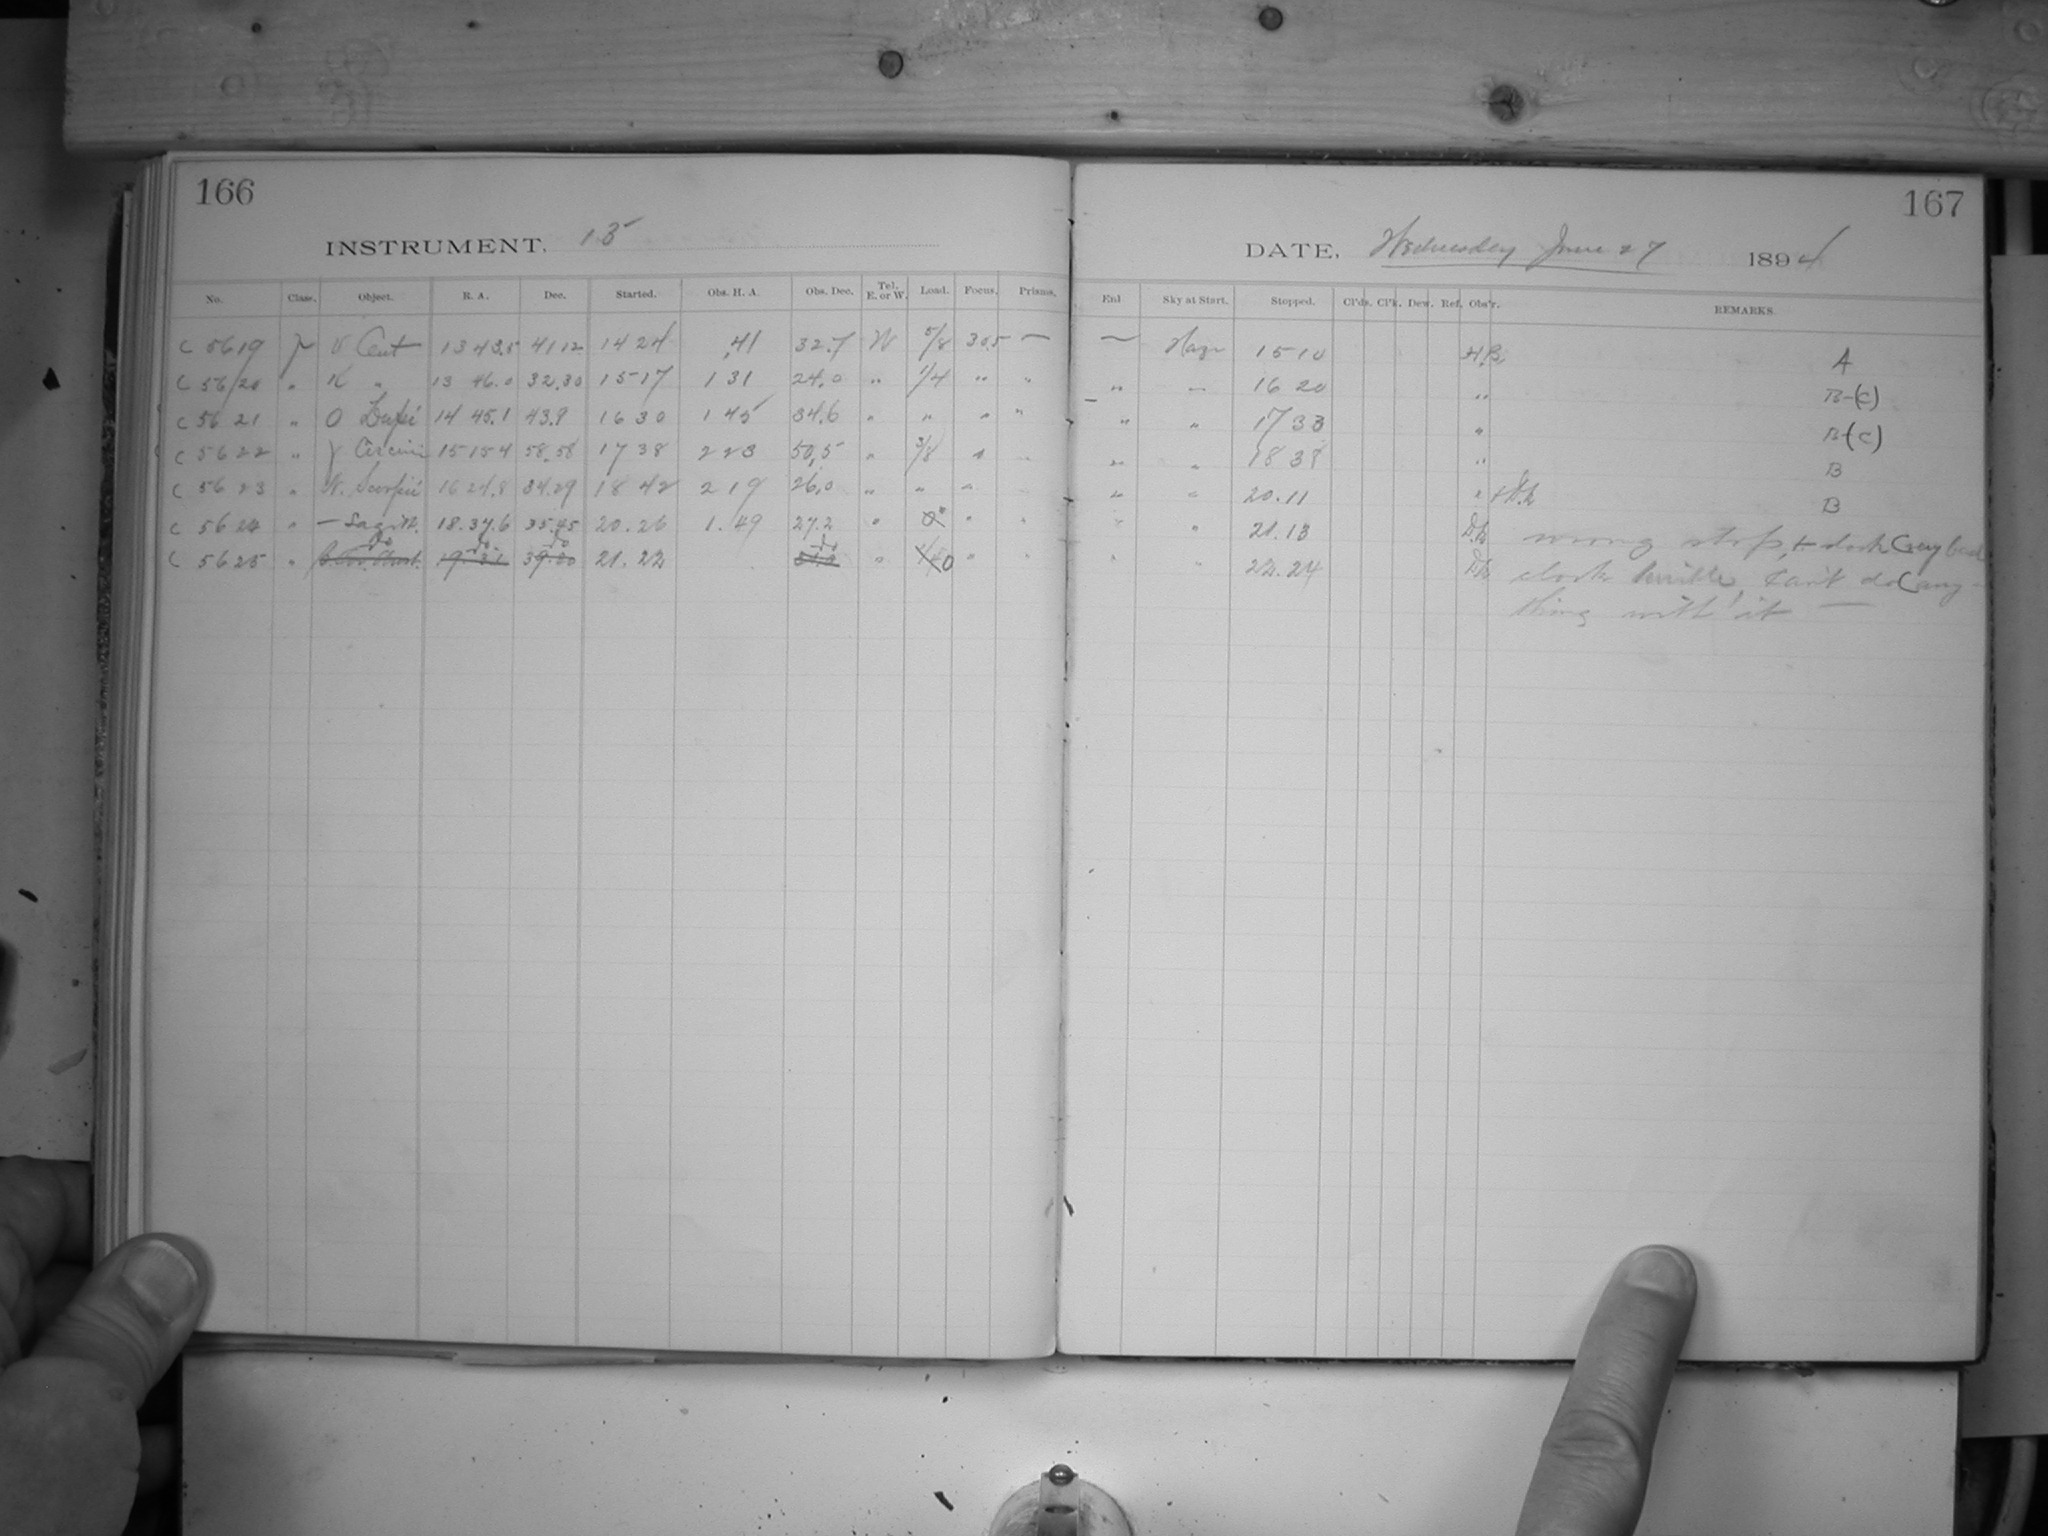 166
INSTRUMENT. 13
No. Class. Object. R. A. Dec. Started. Obs. H. A. Obs. Dec. Tel. E. or W. Load. Focus. Prisms.
C 5619 Cent 13 43.5 41 12 14 24 .41 32.7 W 5/8 30.5 —
C 5620 " K " 13 46.0 32.30 15 17 1 31 24.0 " 1/4 " "
C 5621 " O Lupi 14 45.1 43.9 16 30 1 45 34.6 " " " "
C 5622 " γ Circini 15 15 4 58.58 17 38 2 23 50.5 " 3/8 "
C 5623 " N. Scorpii 16 24.8 34.29 18 42 2 19 26.0 " " "
C 5624 " — Sagitt. 18.37.6 35.45 20.26 1.49 27.2 " 0 " "
C 5625 " do do do 21.22 do " 0 " "
167
DATE, Wednesday June 27 1894
Enl Sky at Start. Stopped. Cl'ds. Cl'k. Dew. Ref. Obs'r. REMARKS.
— Haze 15 10 H.B. A
" — 16 20 " B-(C)
" " 17 33 " B-(C)
" " 18 38 " B
" " 20.11 " B
" " 21.13 wrong stop, + clock very bad
" " 22.24 clock terrible, can't do any-
thing with it —